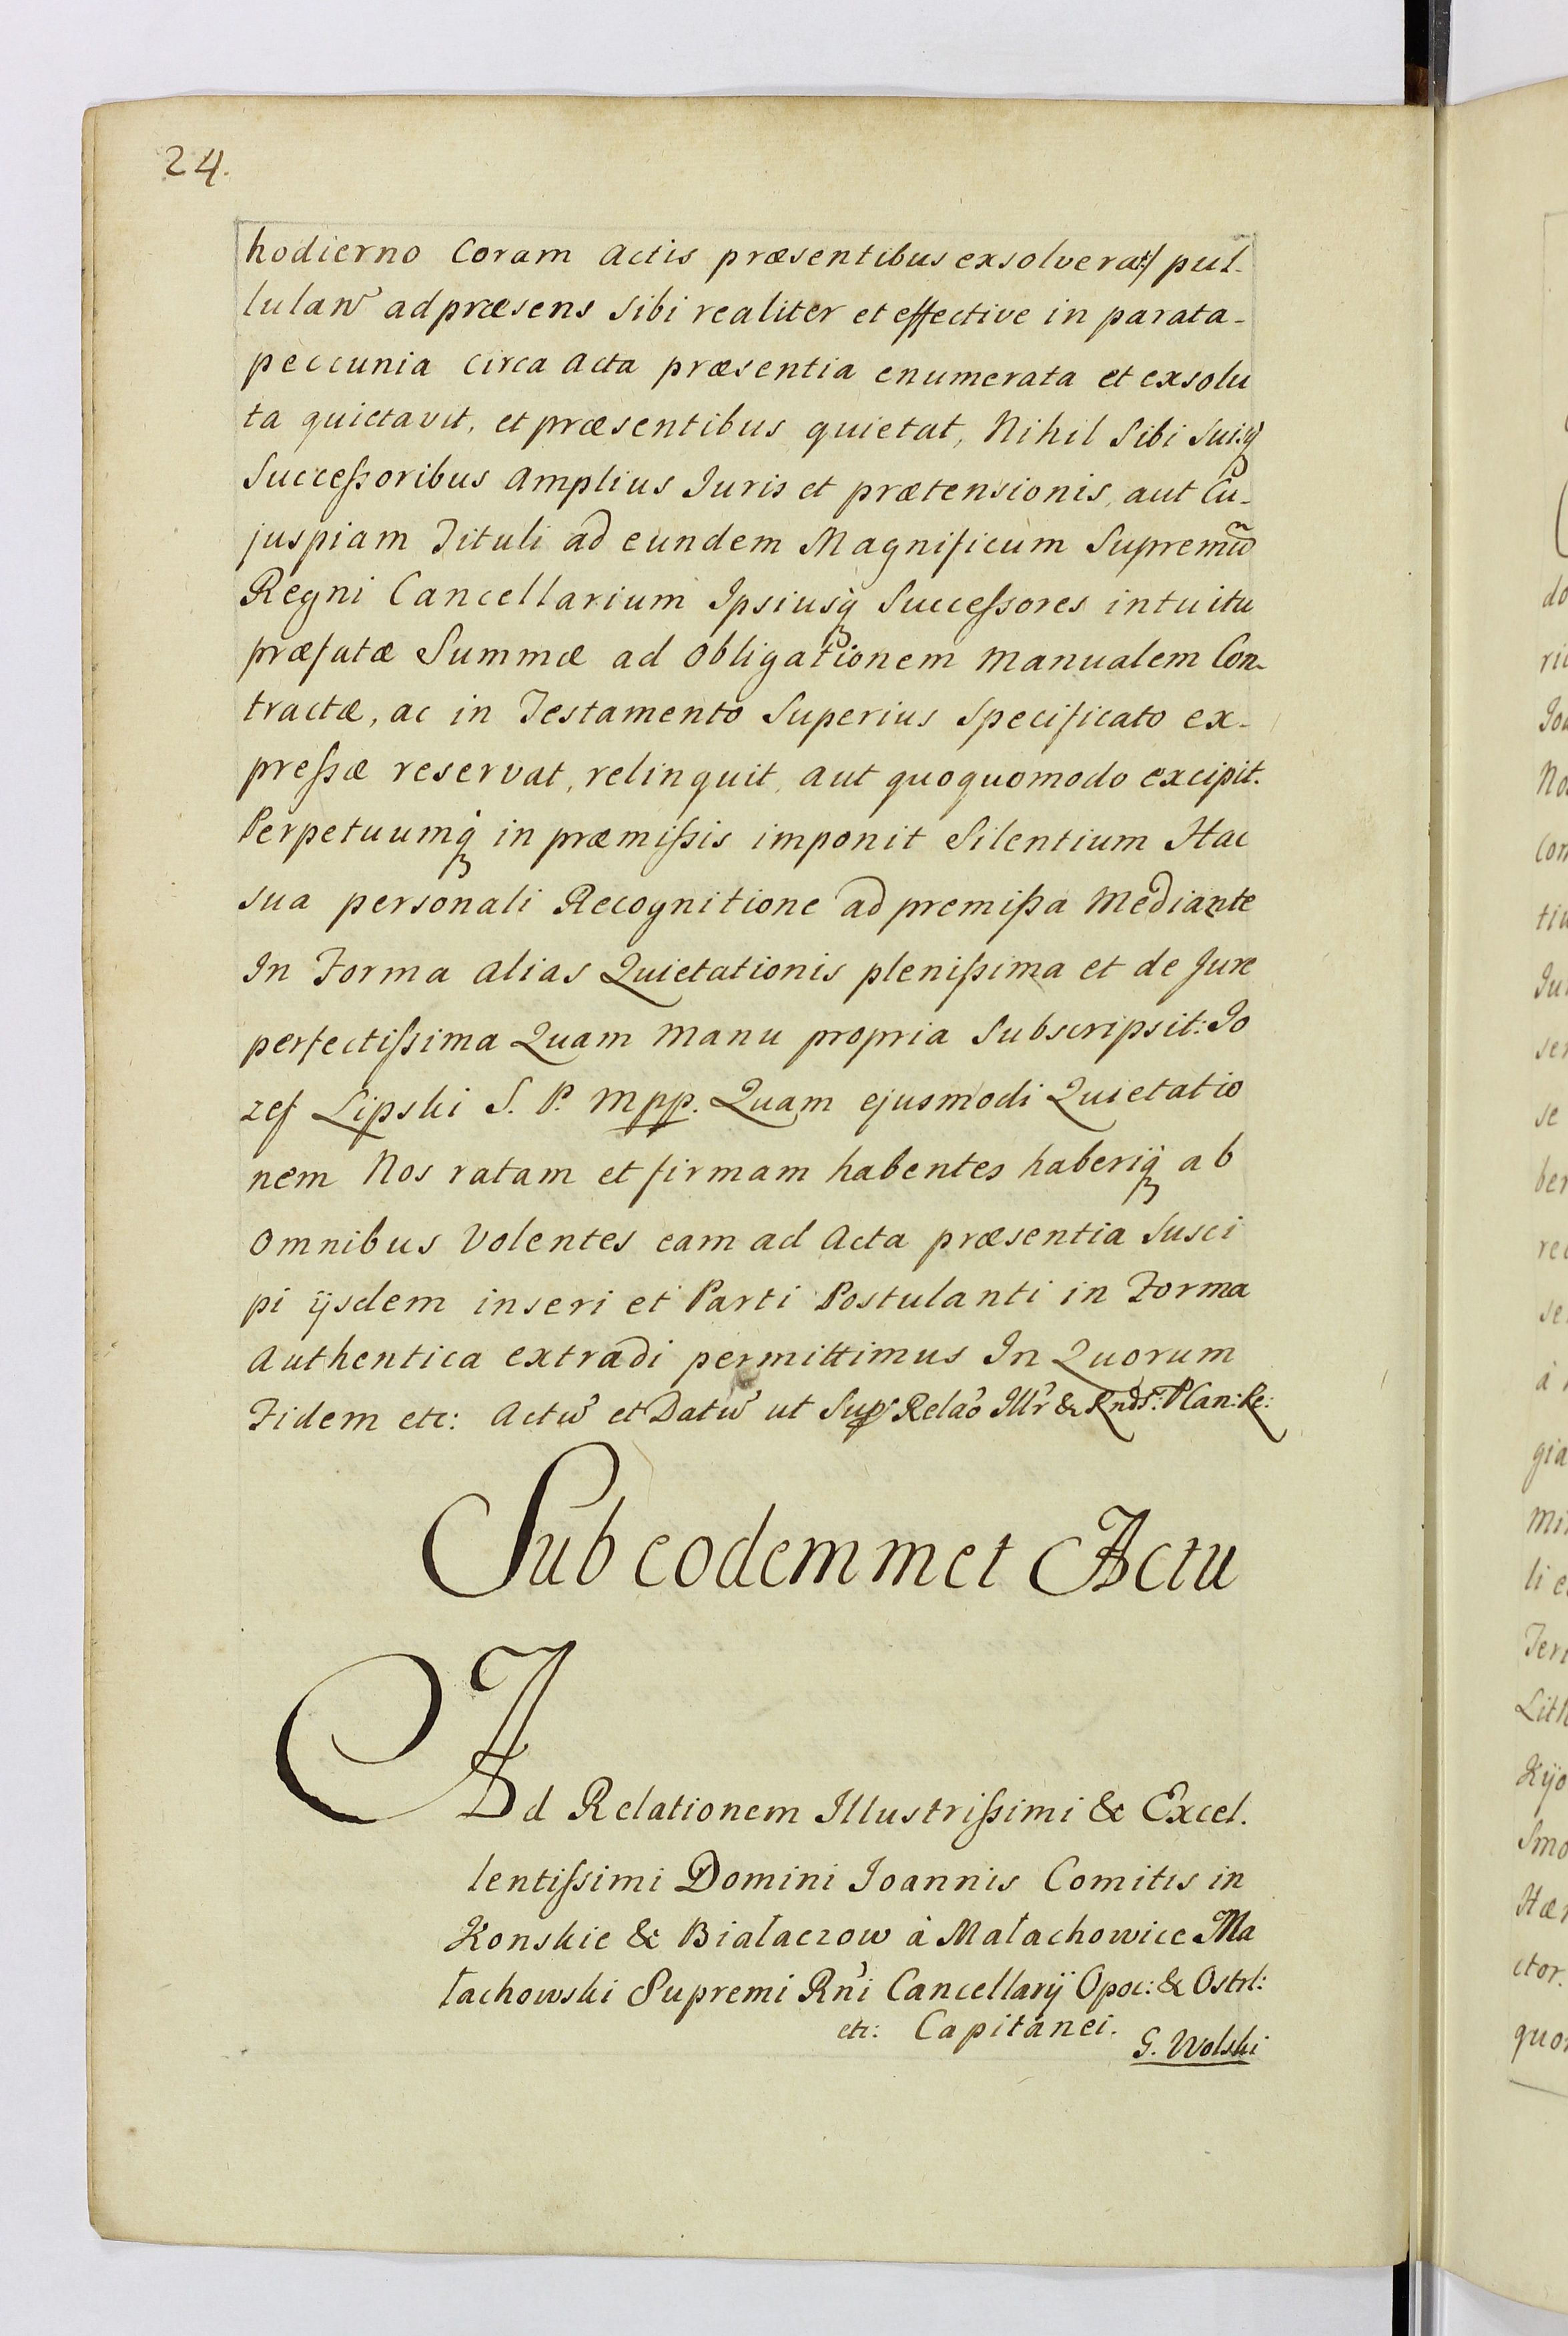 24.
hodierno Coram Actis præsentibus exsolverat/ pul-
lulan̄ ad præsens Sibi realiter et effective in parata-
peccunia circa Acta præsentia enumerata et exsolu
ta quietavit, et præsentibus quietat, Nihil Sibi Suisq̃
Succeßoribus Amplius Iuris et prætensionis, aut Cu-
juspiam Tituli ad eundem Magnificum Supremũ
Regni Cancellarium Ipsiusq̃ Succeßores intuitu
præfatæ Summæ ad Obligationem Manualem Con-
tractæ, ac in Testamento Superius Specificato ex-
preßæ reservat, relinquit, aut quoquomodo excipit.
Perpetuumq̃ in præmißis imponit Silentium Hac
sua personali Recognitione ad premißa Mediante
In Forma alias Quietationis plenißima et de Jure
perfectißima Quam Manu propria Subscripsit: Jo
zef Lipski S. P. mpp. Quam ejusmodi Quietatio
nem Nos ratam et firmam habentes haberiq̃ ab
Omnibus Volentes eam ad Acta præsentia Susci
pi ijsdem inseri et Parti Postulanti in Forma
Authentica extradi permittimus In Quorum
Fidem etc: Actũ et Datũ ut Sup. Relaõ Illr̃ & Rnds: P Can: Re:
Sub eodemmet Actu
Ad Relationem Illustrißimi & Excel.
lentißimi Domini Joannis Comitis in
Konskie & Białaczow à Małachowice Ma
łachowski Supremi Rñi Cancellarij Opoc: & Ostrl:
etc: Capitanei.
G. Wolski
do
No
Con
tiu
ser
se
ber
rec
à
gia
li e
Lith
Kijo
Smo
ctor.
quo